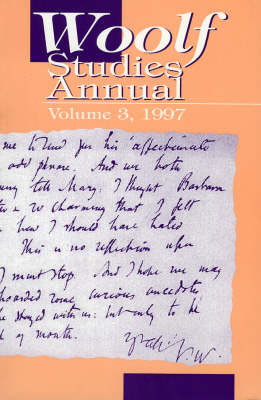 Woolf
Studies
Annual
Volume 3, 1997
me to send you his affectionate
odd phrase. And we both
tell Mary: I thought Barbara
so charming that I felt
how I should have hated
This is no reflection upon
I must stop. And I hope we may
hoarded some curious anecdote
he stayed with us: but only to be
of month.
V.W.